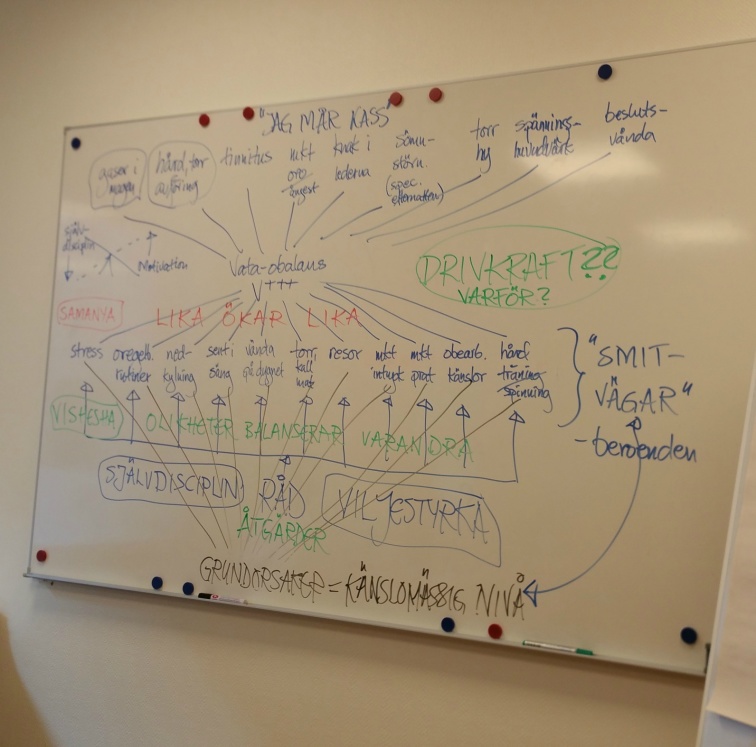 "JAG MÅR KASS"
gaser i magen
hård, torr avföring
tinnitus
mkt oro ångest
knak i lederna
Sömn-störn. (spec. efternatten)
torr hy
spännings-huvudvärk
besluts-vånda
själv-disciplin
Motivation
Vata-obalans
V+++
DRIVKRAFT??
VARFÖR?
SAMANYA
LIKA ÖKAR LIKA
stress
oregelb. rutiner
ned-kylning
sent i säng
vända på dygnet
torr, kall mat
resor
mkt intryck
mkt prat
obearb. känslor
hård träning spinning
"SMIT-
VÄGAR"
-beroenden
VISHESHA
OLIKHETER BALANSERAR VARANDRA
SJÄLVDISCIPLIN
RÅD
VILJESTYRKA
ÅTGÄRDER
GRUNDORSAKER = KÄNSLOMÄSSIG NIVÅ